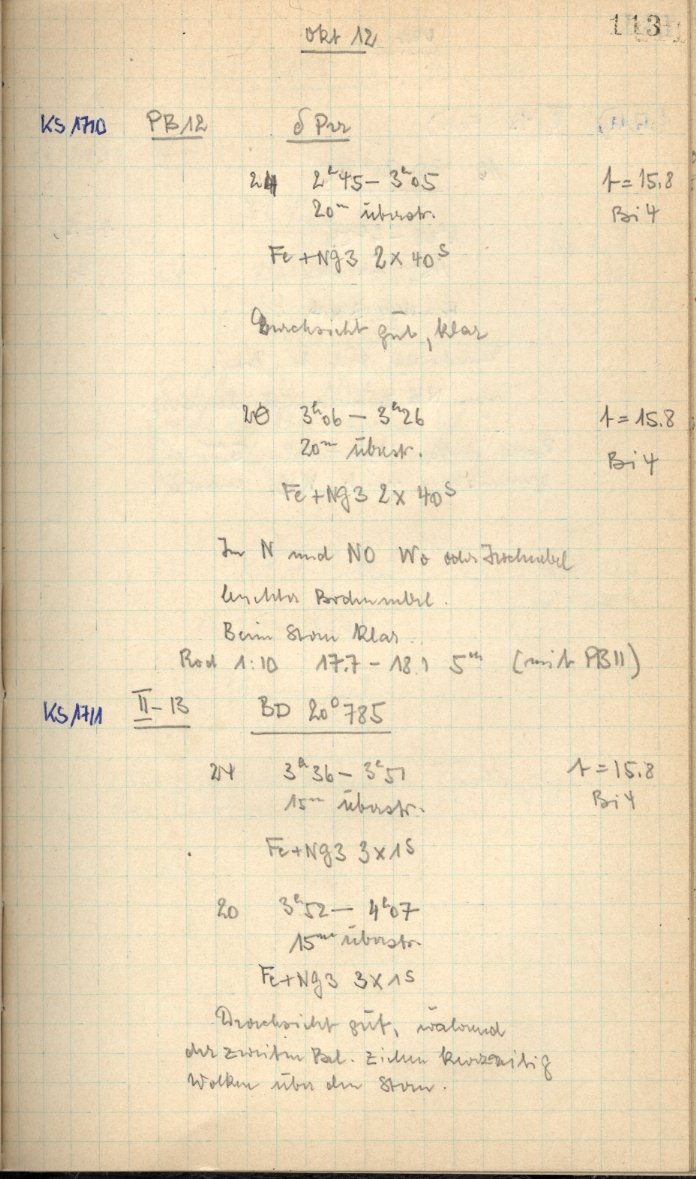 Okt 12
113
KS 1710 PB 12 δ Per
24 2ʰ45 – 3ʰ05 t = 15.8
20ᵐ überstr. Bi 4
Fe + Ng 3 2 × 40ˢ
Durchsicht gut, klar
20 3ʰ06 – 3ʰ26 t = 15.8
20ᵐ überstr. Bi 4
Fe + Ng 3 2 × 40ˢ
Im N und NO Wo oder Hochnebel
leichter Bodennebel.
Beim Stern klar.
Rod 1:10 17.7 – 18.1 5ᵐ (mit PB 11)
KS 1711 II - 13 BD 20°785
24 3ʰ36 – 3ʰ51 t = 15.8
15ᵐ überstr. Bi 4
Fe + Ng 3 3 × 1ˢ
20 3ʰ52 – 4ʰ07
15ᵐ überstr.
Fe + Ng 3 3 × 1ˢ
Durchsicht gut, während
der zweiten Bel. ziehen kurzzeitig
Wolken über den Stern.